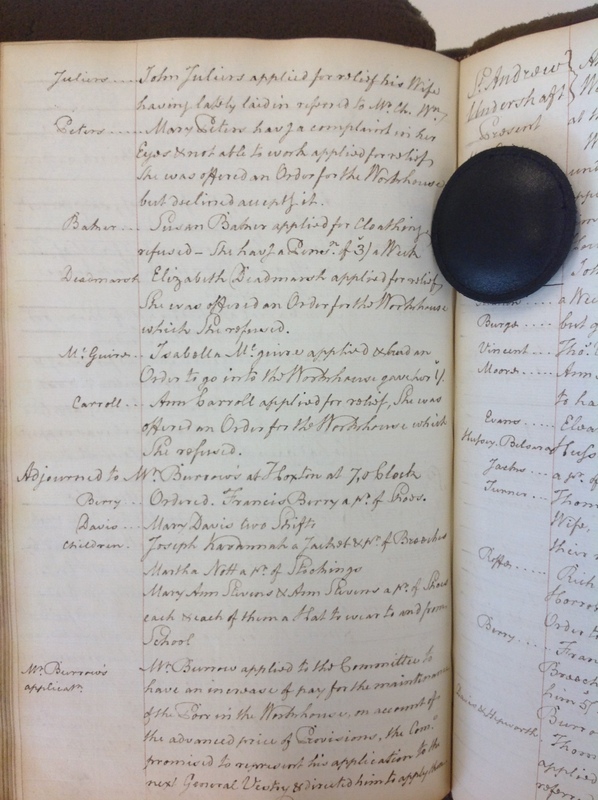 Juliers.... John Juliers applied for relief his Wife
having lately laid in referred to Mr. Ch. Wn.
Peters..... Mary Peters has a complaint in her
Eyes & not able to work applied for relief
She was offered an Order for the Workhouse
but declined accepts. it.
Batner.... Susan Batner applied for Cloathing
refused - She has a Penn. of 3/ a Week
Deadmarsh Elizabeth Deadmarsh applied for relief
She was offered an Order for the Workhouse
which She refused.
McGuire... Isabella McGuire applied & had an
Order to go into the Workhouse gave her 1/.
Carroll.... Ann Carroll applied for relief, She was
offered an Order for the Workhouse which
She refused.
Adjourned to Mr. Burrow's at Hoxton at 7 o Clock
Berry... Ordered. Francis Berry a pr. of Shoes.
Davis... Mary Davis two Shifts
Children. Joseph a Jacket & pr. of Breeches
Martha Nott a pr. of Stockings
Mary Ann Stevens & Ann Stevens a pr. of Shoes
each & each of them a Hat to wear to and from
School
Mr. Burrow's Mr. Burrow applied to the Committee to
applicatn. have an increase of pay for the maintenance
of the Poor in the Workhouse, on account of
the advanced price of Provisions, the Com.
promised to represent his application to the
next General Vestry & directed him to apply then
St. Andrew
Undershaft
Present
a Wee
Burge..... but g
Vincent.... Tho.
Moore.... Ann
to ha
Evans
Hussey
Jacks
Turner.... Thom
Wife,
their
Rich
Order to
Berry.... Fran
Breech
him 5/
& Hepworth Burro
Thom
applied
referred